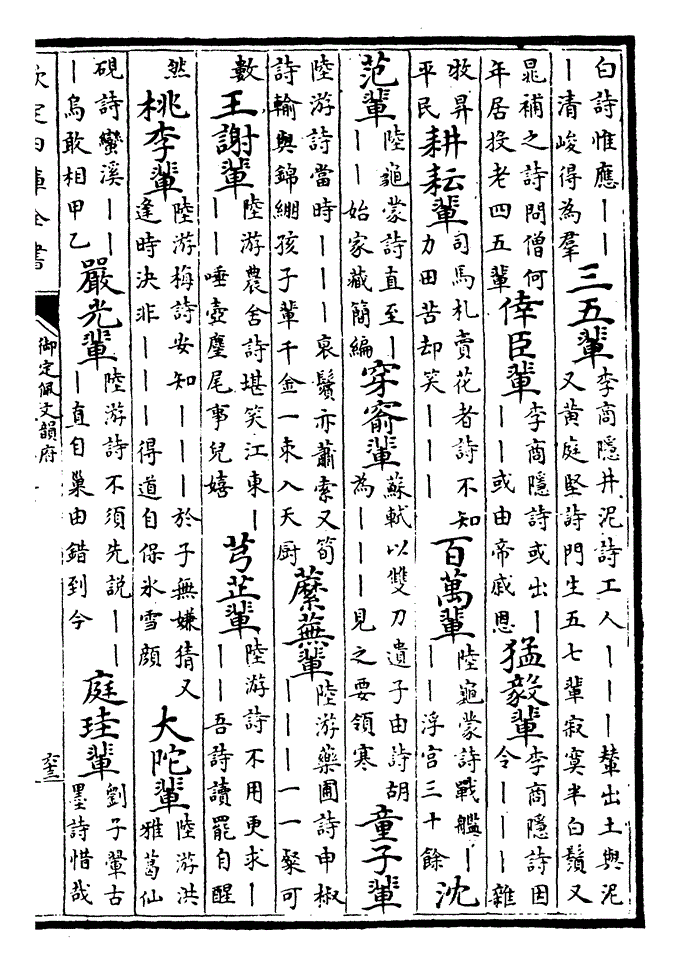 白詩惟應丨丨
丨清峻得為羣
三五輩
李商隱井泥詩工人丨丨丨輦出土與泥
又黄庭堅詩門生五七輩寂寞半白鬚又
晁補之詩問僧何
年居投老四五輩
倖臣輩
李商隱詩或出丨
丨丨或由帝戚恩
猛毅輩
李商隱詩因
令丨丨丨雜
牧昇
平民
耕耘輩
司馬札賣花者詩不知
力田苦却笑丨丨丨
百萬輩
陸龜蒙詩戰艦丨
丨丨浮宫三十餘
沈
范輩
陸龜蒙詩直至丨
丨丨始家藏簡編
穿窬輩
蘇軾以雙刀遺子由詩胡
為丨丨丨見之要領寒
童子輩
陸游詩當時丨丨丨哀鬢亦蕭索又筍
詩輸與錦綳孩子輩千金一束入天厨
蘪蕪輩
陸游藥圃詩申椒
丨丨丨一一粲可
數
王謝輩
陸游農舍詩堪笑江東丨
丨丨唾壺麈尾事兒嬉
芎芷輩
陸游詩不用更求丨
丨丨吾詩讀罷自醒
然
桃李輩
陸游梅詩安知丨丨丨於子無嫌猜又
逢時決非丨丨丨得道自保冰雪顔
大陀輩
陸游洪
雅葛仙
硯詩蠻溪丨丨
丨烏敢相甲乙
嚴光輩
陸游詩不須先説丨丨
丨直自巢由錯到今
庭珪輩
劉子翬古
墨詩惜哉
欽定四庫全書
御定佩文韻府